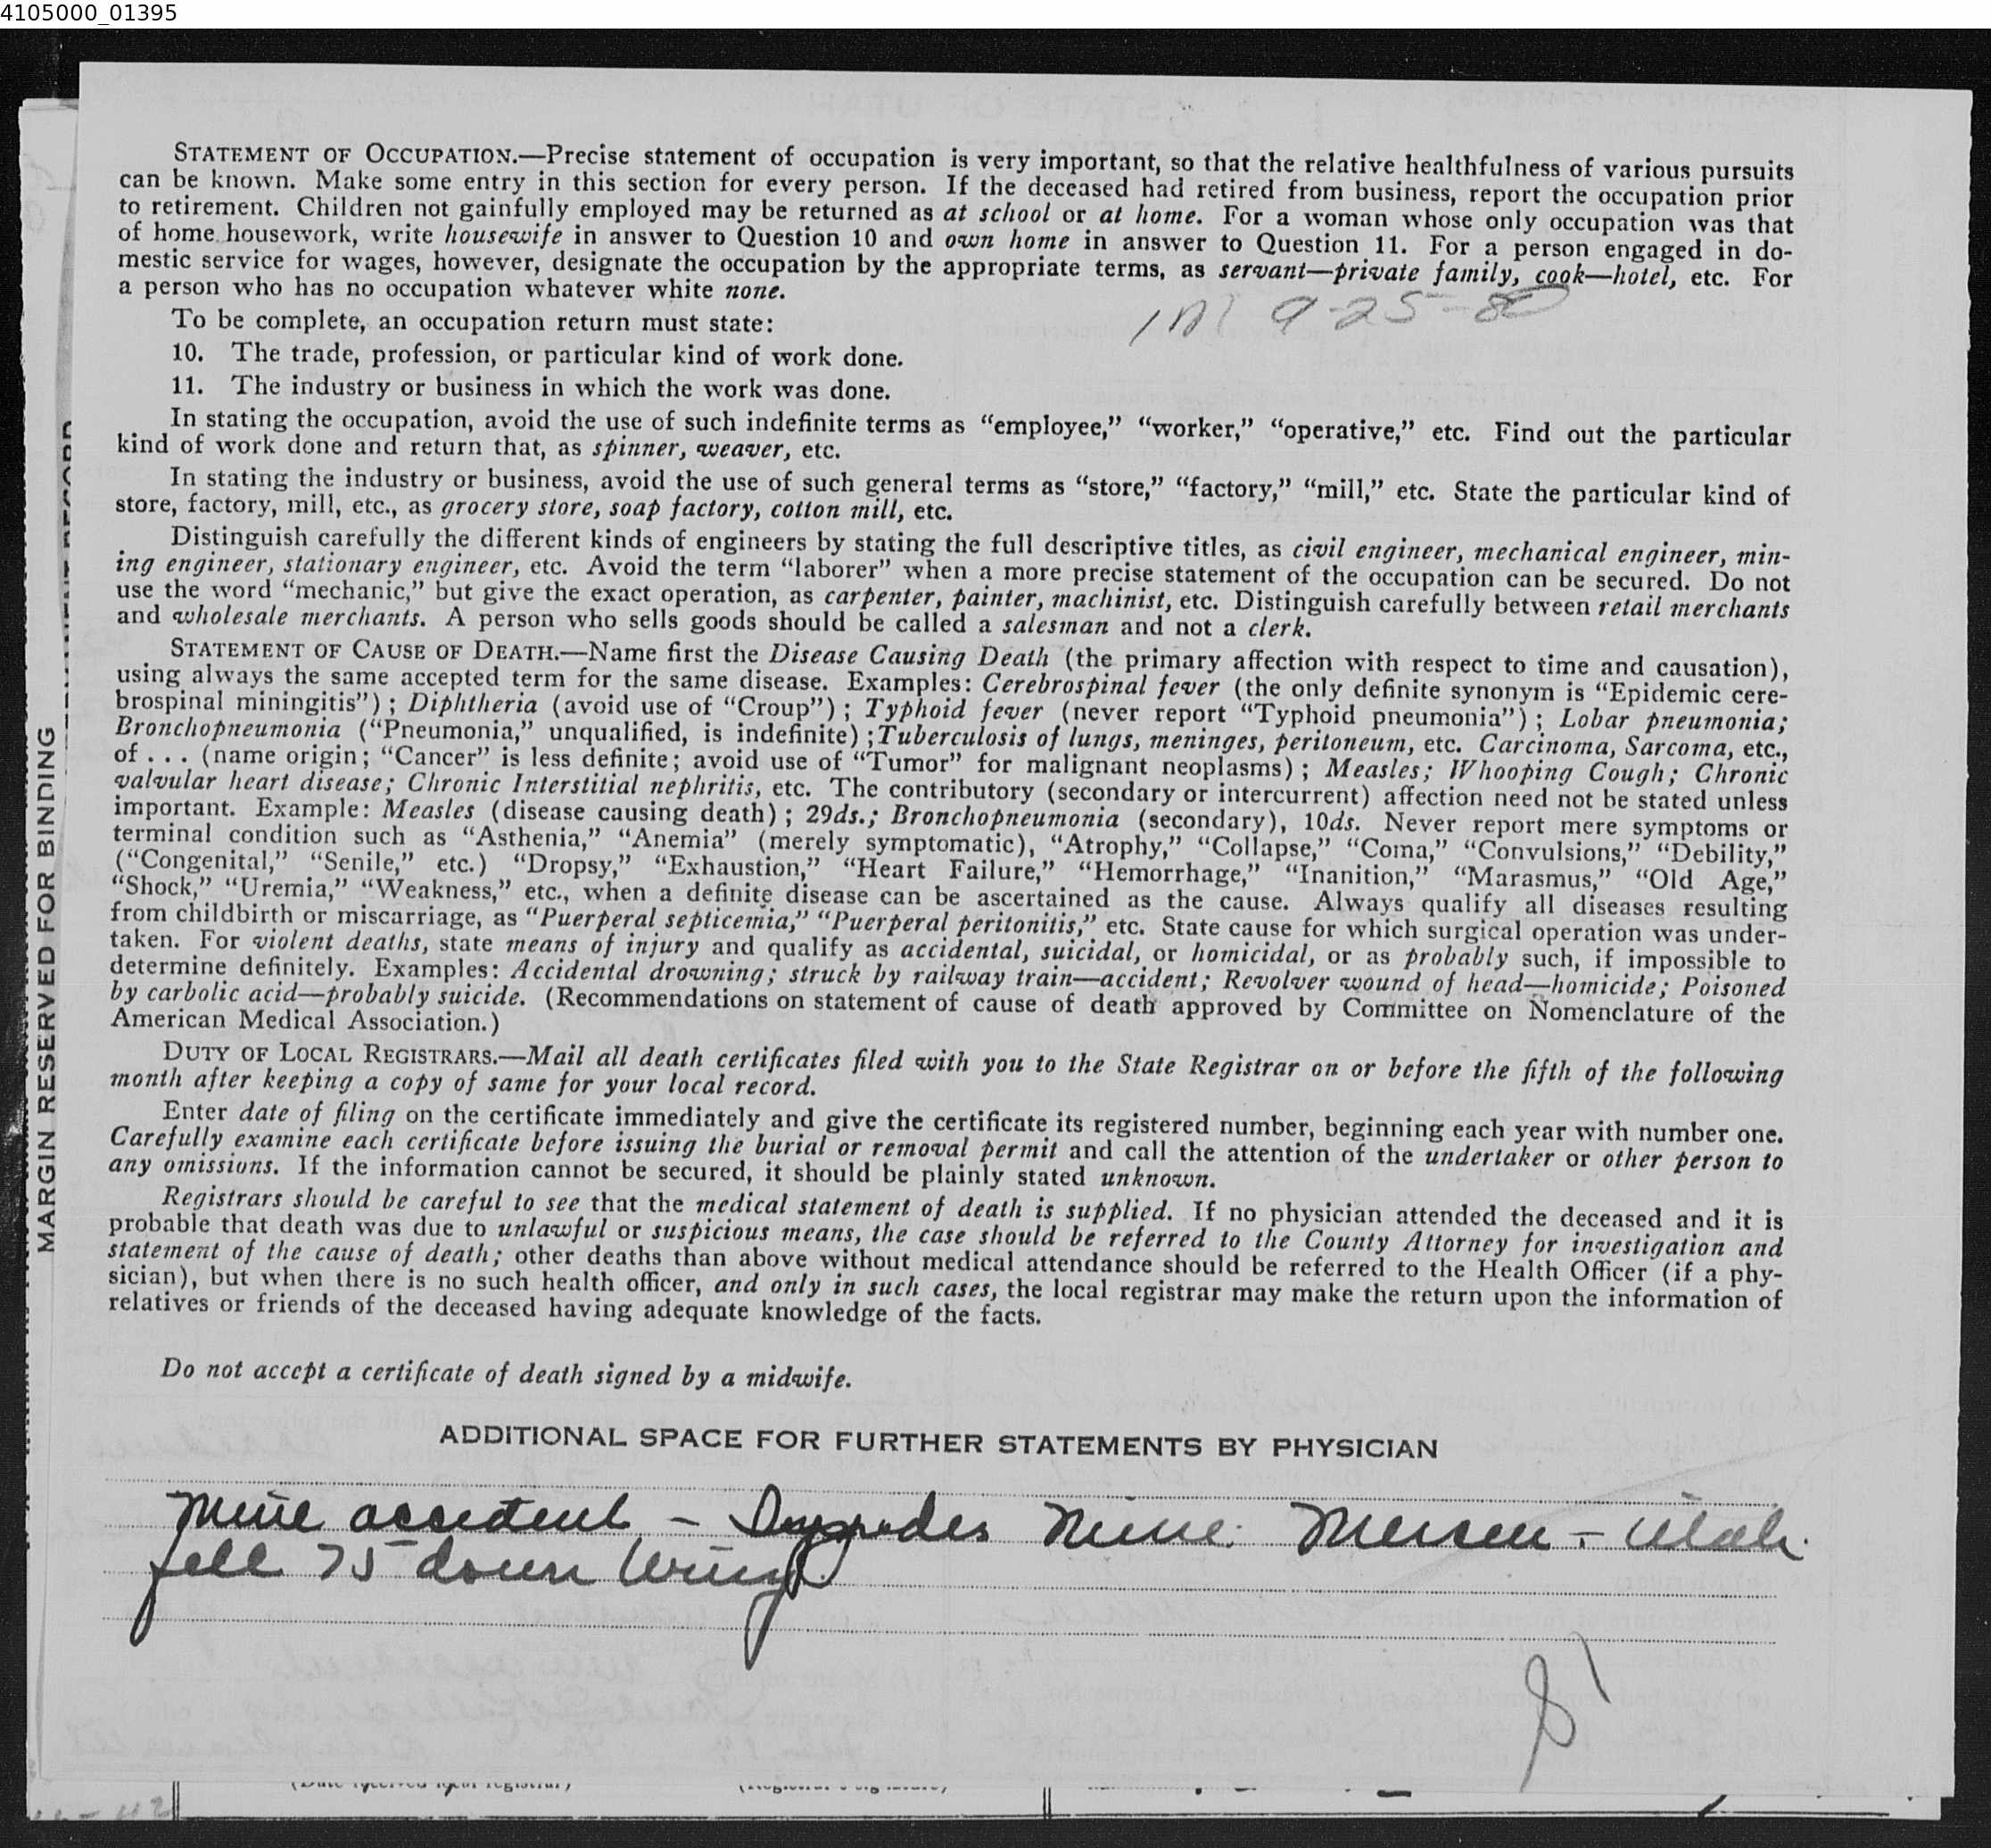 4105000_01395
STATEMENT OF OCCUPATION.—Precise statement of occupation is very important, so that the relative healthfulness of various pursuits
can be known. Make some entry in this section for every person. If the deceased had retired from business, report the occupation prior
to retirement. Children not gainfully employed may be returned as at school or at home. For a woman whose only occupation was that
of home housework, write housewife in answer to Question 10 and own home in answer to Question 11. For a person engaged in do-
mestic service for wages, however, designate the occupation by the appropriate terms, as servant—private family, cook—hotel, etc. For
a person who has no occupation whatever white none.
9-25-80
To be complete, an occupation return must state:
10. The trade, profession, or particular kind of work done.
11. The industry or business in which the work was done.
In stating the occupation, avoid the use of such indefinite terms as “employee,” “worker,” “operative,” etc. Find out the particular
kind of work done and return that, as spinner, weaver, etc.
In stating the industry or business, avoid the use of such general terms as “store,” “factory,” “mill,” etc. State the particular kind of
store, factory, mill, etc., as grocery store, soap factory, cotton mill, etc.
Distinguish carefully the different kinds of engineers by stating the full descriptive titles, as civil engineer, mechanical engineer, min-
ing engineer, stationary engineer, etc. Avoid the term “laborer” when a more precise statement of the occupation can be secured. Do not
use the word “mechanic,” but give the exact operation, as carpenter, painter, machinist, etc. Distinguish carefully between retail merchants
and wholesale merchants. A person who sells goods should be called a salesman and not a clerk.
STATEMENT OF CAUSE OF DEATH.—Name first the Disease Causing Death (the primary affection with respect to time and causation),
using always the same accepted term for the same disease. Examples: Cerebrospinal fever (the only definite synonym is “Epidemic cere-
brospinal miningitis”) ; Diphtheria (avoid use of “Croup”) ; Typhoid fever (never report “Typhoid pneumonia”) ; Lobar pneumonia;
Bronchopneumonia (“Pneumonia,” unqualified, is indefinite) ;Tuberculosis of lungs, meninges, peritoneum, etc. Carcinoma, Sarcoma, etc.,
of . . . (name origin; “Cancer” is less definite; avoid use of “Tumor” for malignant neoplasms) ; Measles; Whooping Cough; Chronic
valvular heart disease; Chronic Interstitial nephritis, etc. The contributory (secondary or intercurrent) affection need not be stated unless
important. Example: Measles (disease causing death) ; 29ds.; Bronchopneumonia (secondary), 10ds. Never report mere symptoms or
terminal condition such as “Asthenia,” “Anemia” (merely symptomatic), “Atrophy,” “Collapse,” “Coma,” “Convulsions,” “Debility,”
(“Congenital,” “Senile,” etc.) “Dropsy,” “Exhaustion,” “Heart Failure,” “Hemorrhage,” “Inanition,” “Marasmus,” “Old Age,”
“Shock,” “Uremia,” “Weakness,” etc., when a definite disease can be ascertained as the cause. Always qualify all diseases resulting
from childbirth or miscarriage, as “Puerperal septicemia,” “Puerperal peritonitis,” etc. State cause for which surgical operation was under-
taken. For violent deaths, state means of injury and qualify as accidental, suicidal, or homicidal, or as probably such, if impossible to
determine definitely. Examples: Accidental drowning; struck by railway train—accident; Revolver wound of head—homicide; Poisoned
by carbolic acid—probably suicide. (Recommendations on statement of cause of death approved by Committee on Nomenclature of the
American Medical Association.)
DUTY OF LOCAL REGISTRARS.—Mail all death certificates filed with you to the State Registrar on or before the fifth of the following
month after keeping a copy of same for your local record.
Enter date of filing on the certificate immediately and give the certificate its registered number, beginning each year with number one.
Carefully examine each certificate before issuing the burial or removal permit and call the attention of the undertaker or other person to
any omissions. If the information cannot be secured, it should be plainly stated unknown.
Registrars should be careful to see that the medical statement of death is supplied. If no physician attended the deceased and it is
probable that death was due to unlawful or suspicious means, the case should be referred to the County Attorney for investigation and
statement of the cause of death; other deaths than above without medical attendance should be referred to the Health Officer (if a phy-
sician), but when there is no such health officer, and only in such cases, the local registrar may make the return upon the information of
relatives or friends of the deceased having adequate knowledge of the facts.
Do not accept a certificate of death signed by a midwife.
ADDITIONAL SPACE FOR FURTHER STATEMENTS BY PHYSICIAN
Mine accident - Mine. Mercur - Utah.
fell 75 down
MARGIN RESERVED FOR BINDING